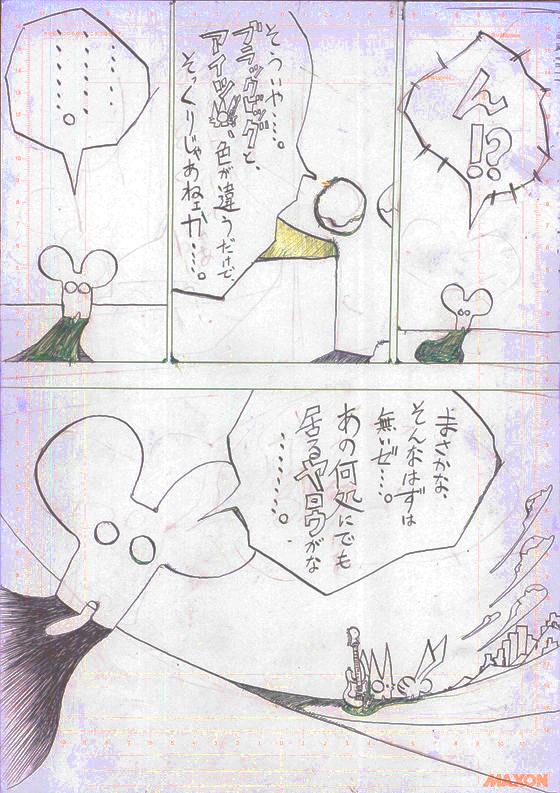 ん!?
そういや‥‥。
ブラックビッグと、
アイツ、色が違うだけで、
そっくりじゃあねェか‥‥。
‥‥‥
‥‥‥‥
‥‥‥‥。
まさかな、
そんなはずは
無いぜ‥‥。
あの何処にでも
居るヤロウがな
‥‥‥‥。
MAXON